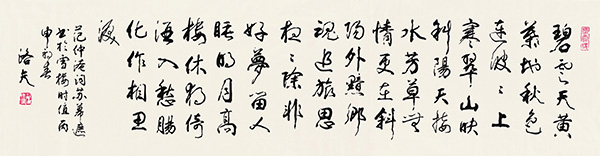 碧云天黄
葉地秋色
连波〻上
寒翠山映
斜陽天接
水芳草無
情更在斜
陽外黯鄉
魂追旅思
夜〻除非
好夢留人
睡明月高
楼休獨倚
酒入愁腸
化作相思
淚
范仲淹词苏幕遮
书於雪楼时值丙
申初春
洛夫